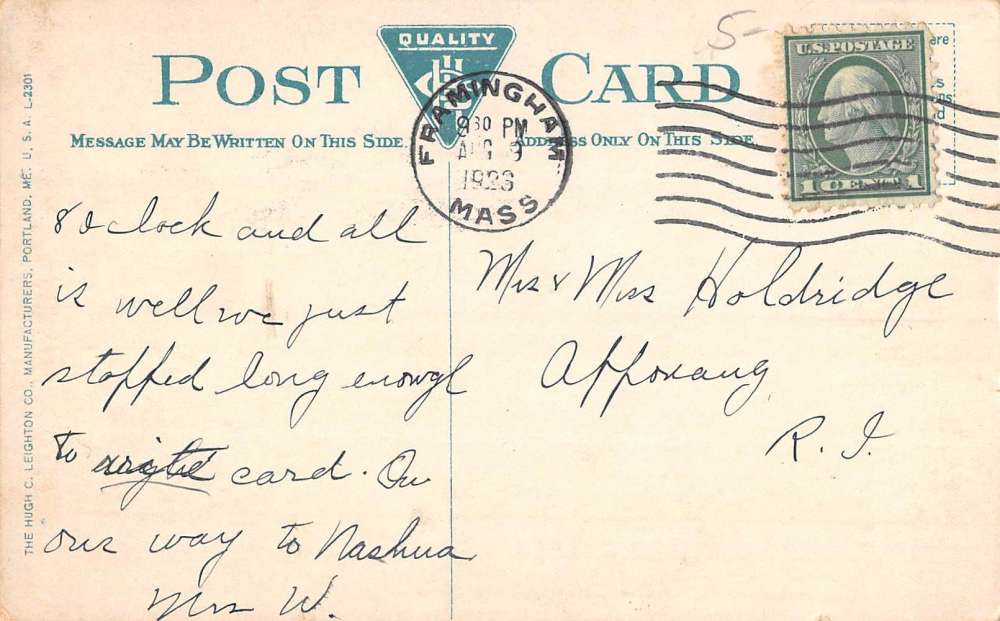 5-
QUALITY
POST CARD
MESSAGE MAY BE WRITTEN ON THIS SIDE
ADDRESS ONLY ON THIS SIDE
FRAMINGHAM
930 PM
AUG 9
MASS
U.S. POSTAGE
1 CENT 1
ere
s
d
8 oclock and all
is well we just
stopped long enowgh
to card. On
our way to Nashua
Mrs W.
Mrs & Miss Holdridge
Apponaug
R. I.
THE HUGH C. LEIGHTON CO., MANUFACTURERS, PORTLAND, ME. U. S. A. L-2301